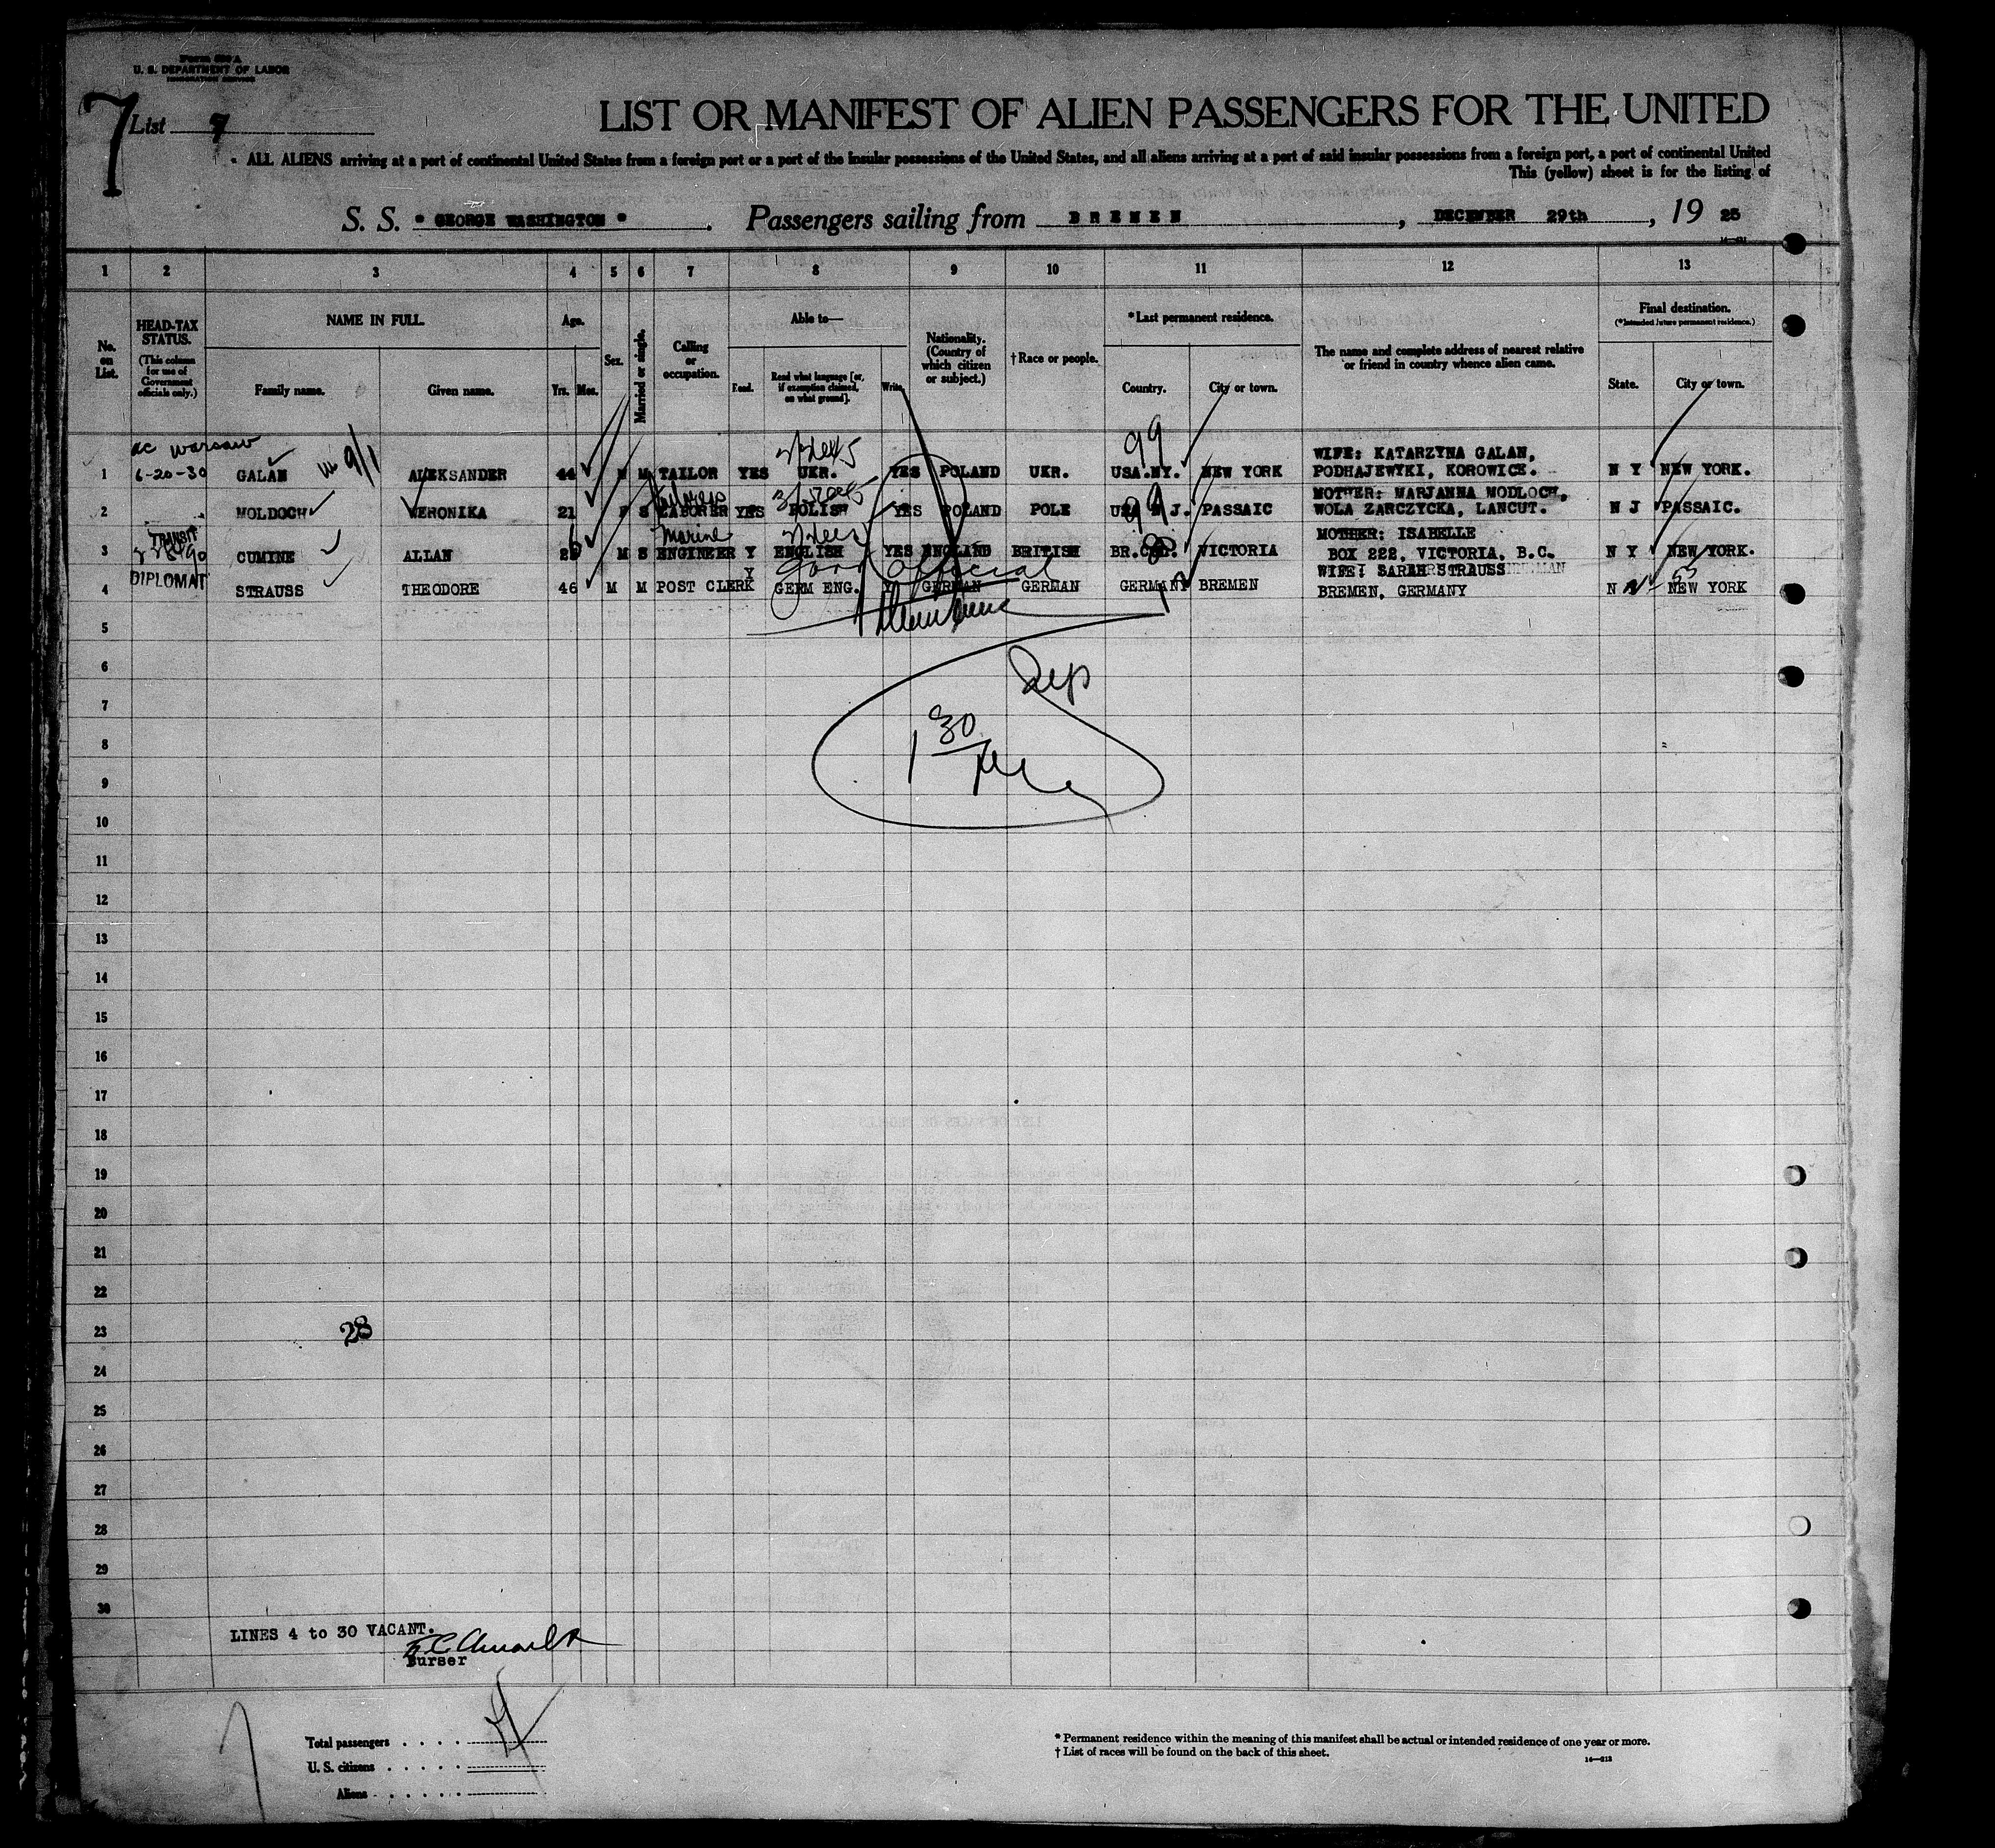 Form 500 A
U. S. DEPARTMENT OF LABOR
IMMIGRATION SERVICE
7
List 7
LIST OR MANIFEST OF ALIEN PASSENGERS FOR THE UNITED
ALL ALIENS arriving at a port of continental United States from a foreign port or a port of the insular possessions of the United States, and all aliens arriving at a port of said insular possessions from a foreign port, a port of continental United
This (yellow) sheet is for the listing of
S. S. " GEORGE WASHINGTON " . Passengers sailing from BREMEN , DECEMBER 29th , 19 25
1 2 3 4 5 6 7 8 9 10 11 12 13
No. on List.
HEAD-TAX STATUS.
(This column for use of Government officials only.)
NAME IN FULL.
Family name. Given name.
Age.
Yrs. Mos.
Sex.
Married or single.
Calling or occupation.
Able to—
Read. Read what language [or, if exemption claimed, on what ground]. Write.
Nationality. (Country of which citizen or subject.)
† Race or people.
*Last permanent residence.
Country. City or town.
The name and complete address of nearest relative or friend in country whence alien came.
Final destination.
(*Intended future permanent residence.)
State. City or town.
ac Warsaw
99
WIFE: KATARZYNA GALAN,
1 6-20-30 GALAN ALEKSANDER 44 M M TAILOR YES UKR. YES POLAND UKR. USA.NY. NEW YORK PODHAJEWYKI, KOROWICE. N Y NEW YORK.
MOTHER: MARJANNA MODLOCH,
2 MOLDOCH VERONIKA 21 F S LABORER YES POLISH YES POLAND POLE PASSAIC WOLA ZARCZYCKA, LANCUT. N J PASSAIC.
TRANSIT
Marine
MOTHER: ISABELLE
3 CUMINE ALLAN M S ENGINEER Y ENGLISH YES ENGLAND BRITISH VICTORIA BOX 222, VICTORIA, B.C. N Y NEW YORK.
Official
DIPLOMAT
WIFE: SARAH STRAUSS
4 STRAUSS THEODORE 46 M M POST CLERK Y GERM ENG. Y GERMAN GERMAN GERMANY BREMEN BREMEN, GERMANY N NEW YORK
5
6
7
8
9
10
11
12
13
14
15
16
17
18
19
20
21
22
23 28
24
25
26
27
28
29
30
1 30
LINES 4 to 30 VACANT.
Purser
Total passengers
U. S. citizens
Aliens
* Permanent residence within the meaning of this manifest shall be actual or intended residence of one year or more.
† List of races will be found on the back of this sheet.